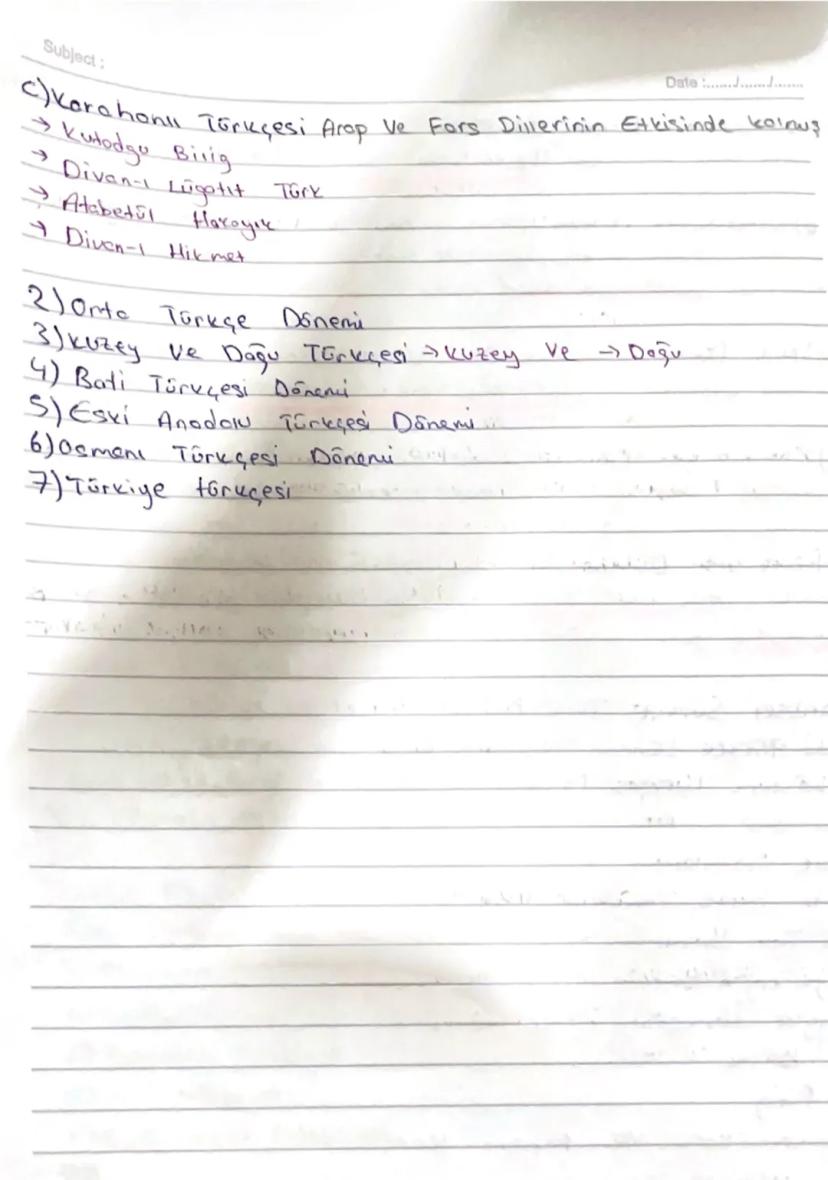 Subject :
Date :......./......./.......
C) Karahanlı Türkçesi Arap Ve Fars Dillerinin Etkisinde kalmış
→ Kutadgu Bilig
→ Divan-ı Lügatit Türk
→ Atabetül Hakayık
→ Divan-ı Hikmet
2) Orta Türkçe Dönemi
3) Kuzey Ve Doğu Türkçesi → Kuzey Ve → Doğu
4) Bati Türkçesi Dönemi
5) Eski Anadolu Türkçesi Dönemi
6) Osmanı Türkçesi Dönemi
7) Türkiye türkçesi